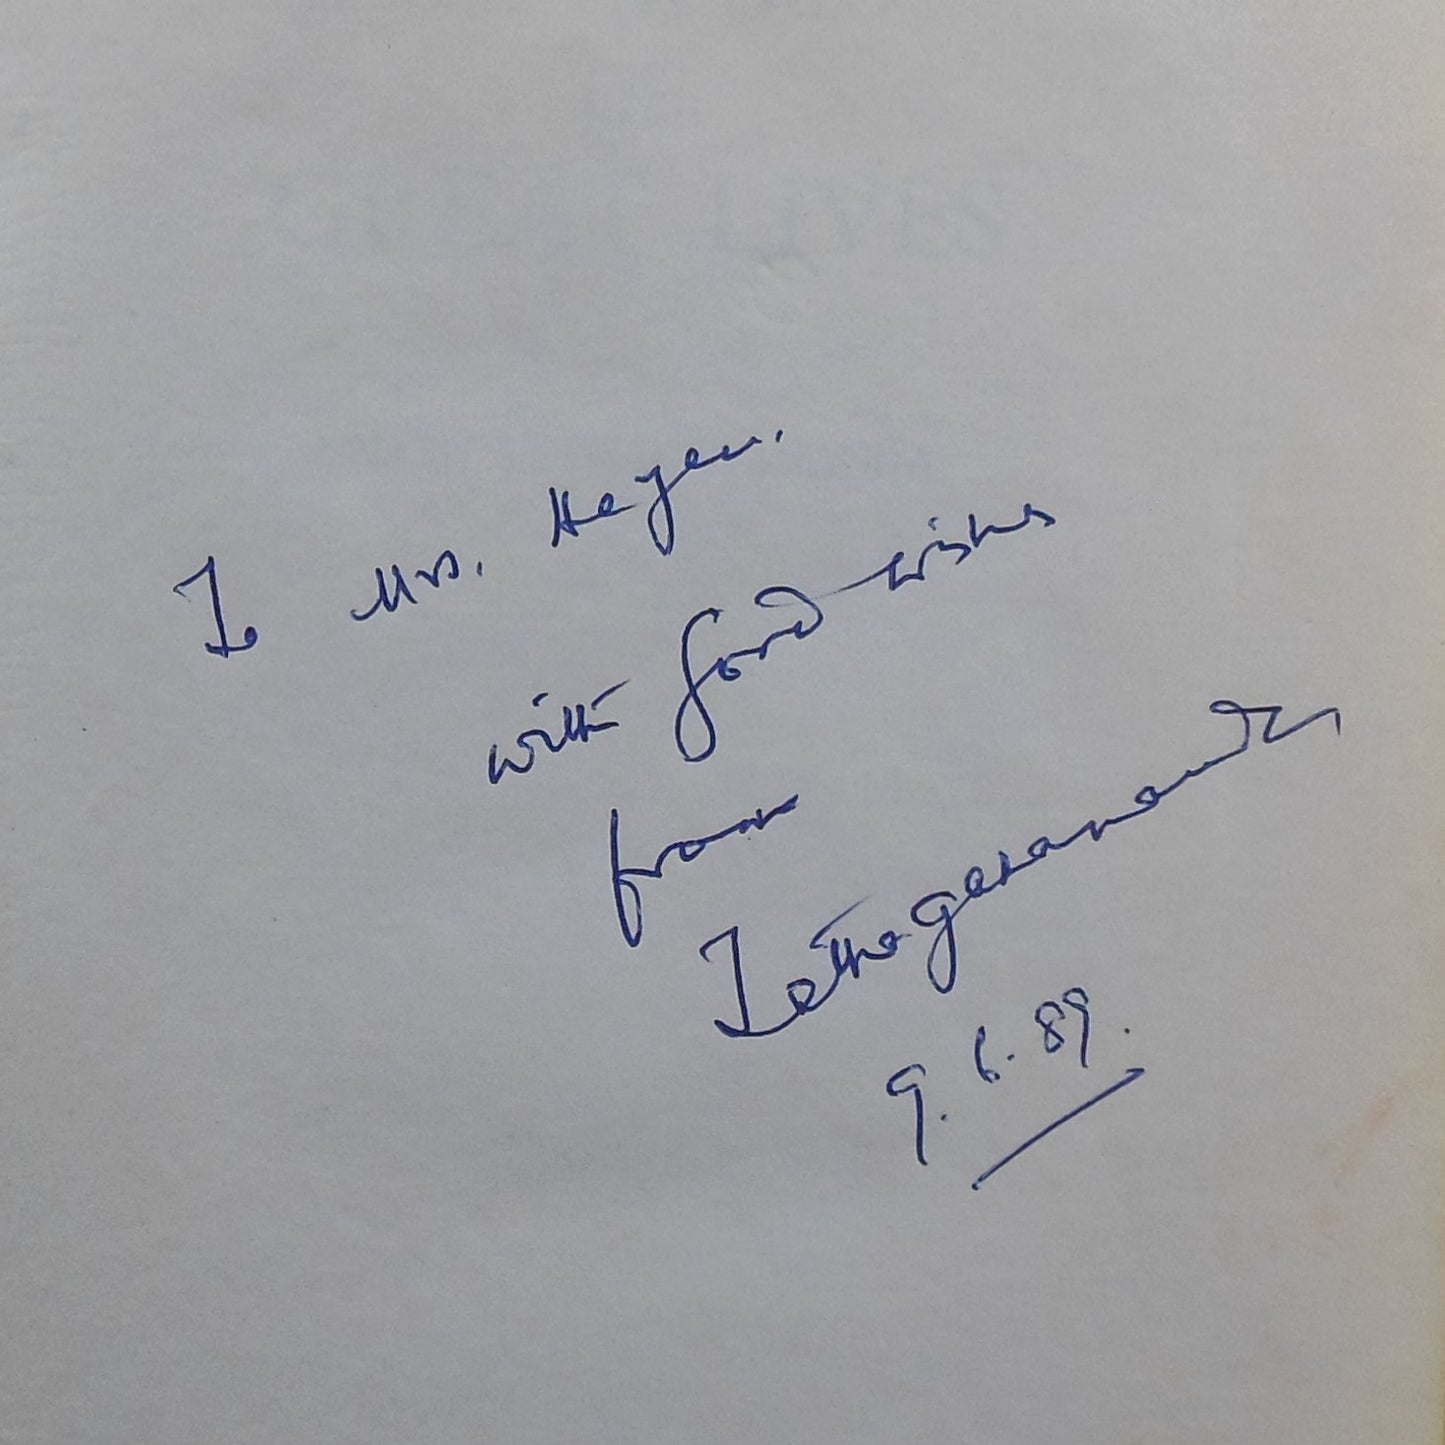 To Mrs. Heyen.
with good wishes
from
Tathagatananda
9.6.89.